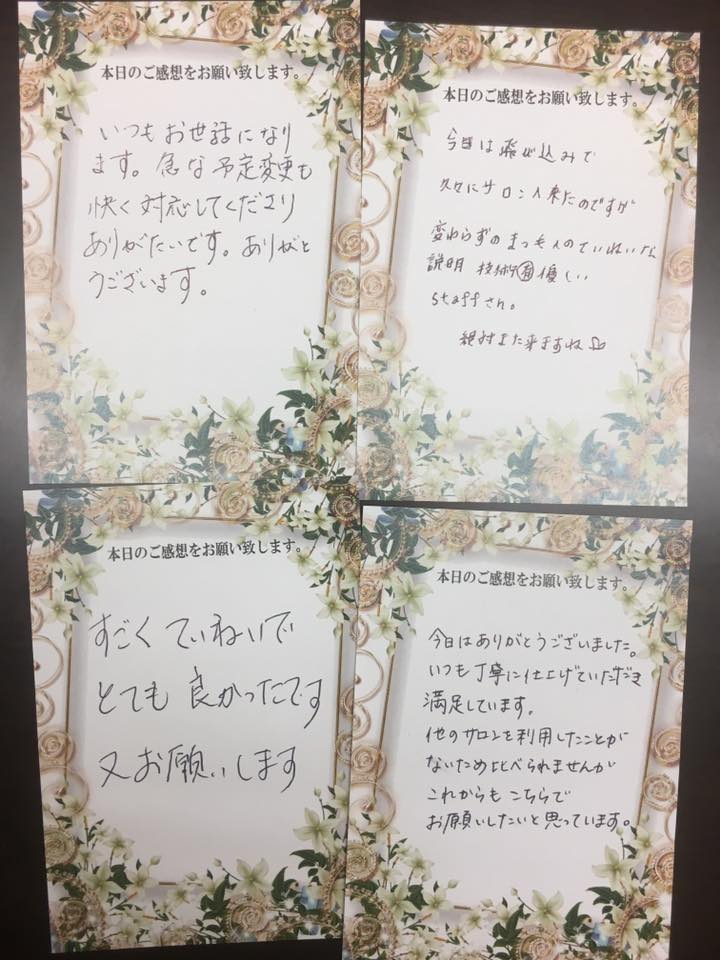 本日のご感想をお願い致します。
いつもお世話になり
ます。急な予定変更も
快く対応してくださり
ありがたいです。ありがと
うございます。
本日のご感想をお願い致します。
今日は飛び込みで
久々にサロンへ来たのですが
変わらずのまつもんのていねいな
説明 技術 優しい
staffさん。
絶対また来ますね
本日のご感想をお願い致します。
すごくていねいで
とても良かったです
又お願いします
本日のご感想をお願い致します。
今日はありがとうございました。
いつも丁寧に仕上げていただき
満足しています。
他のサロンを利用したことが
ないため比べられませんが
これからもこちらで
お願いしたいと思っています。